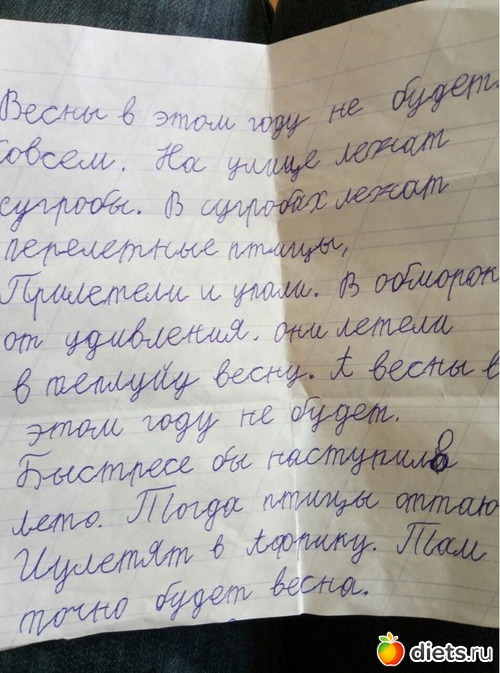 Весны в этом году не будет.
Совсем. На улице лежат
сугробы. В сугробах лежат
перелетные птицы,
Прилетели и упали. В обморок
от удивления. они летели
в теплуйу весну. А весны в
этом году не будет.
Быстресе бы наступило
лето. Тогда птицы оттаю
И улетят в Африку. Там
точно будет весна.
diets.ru